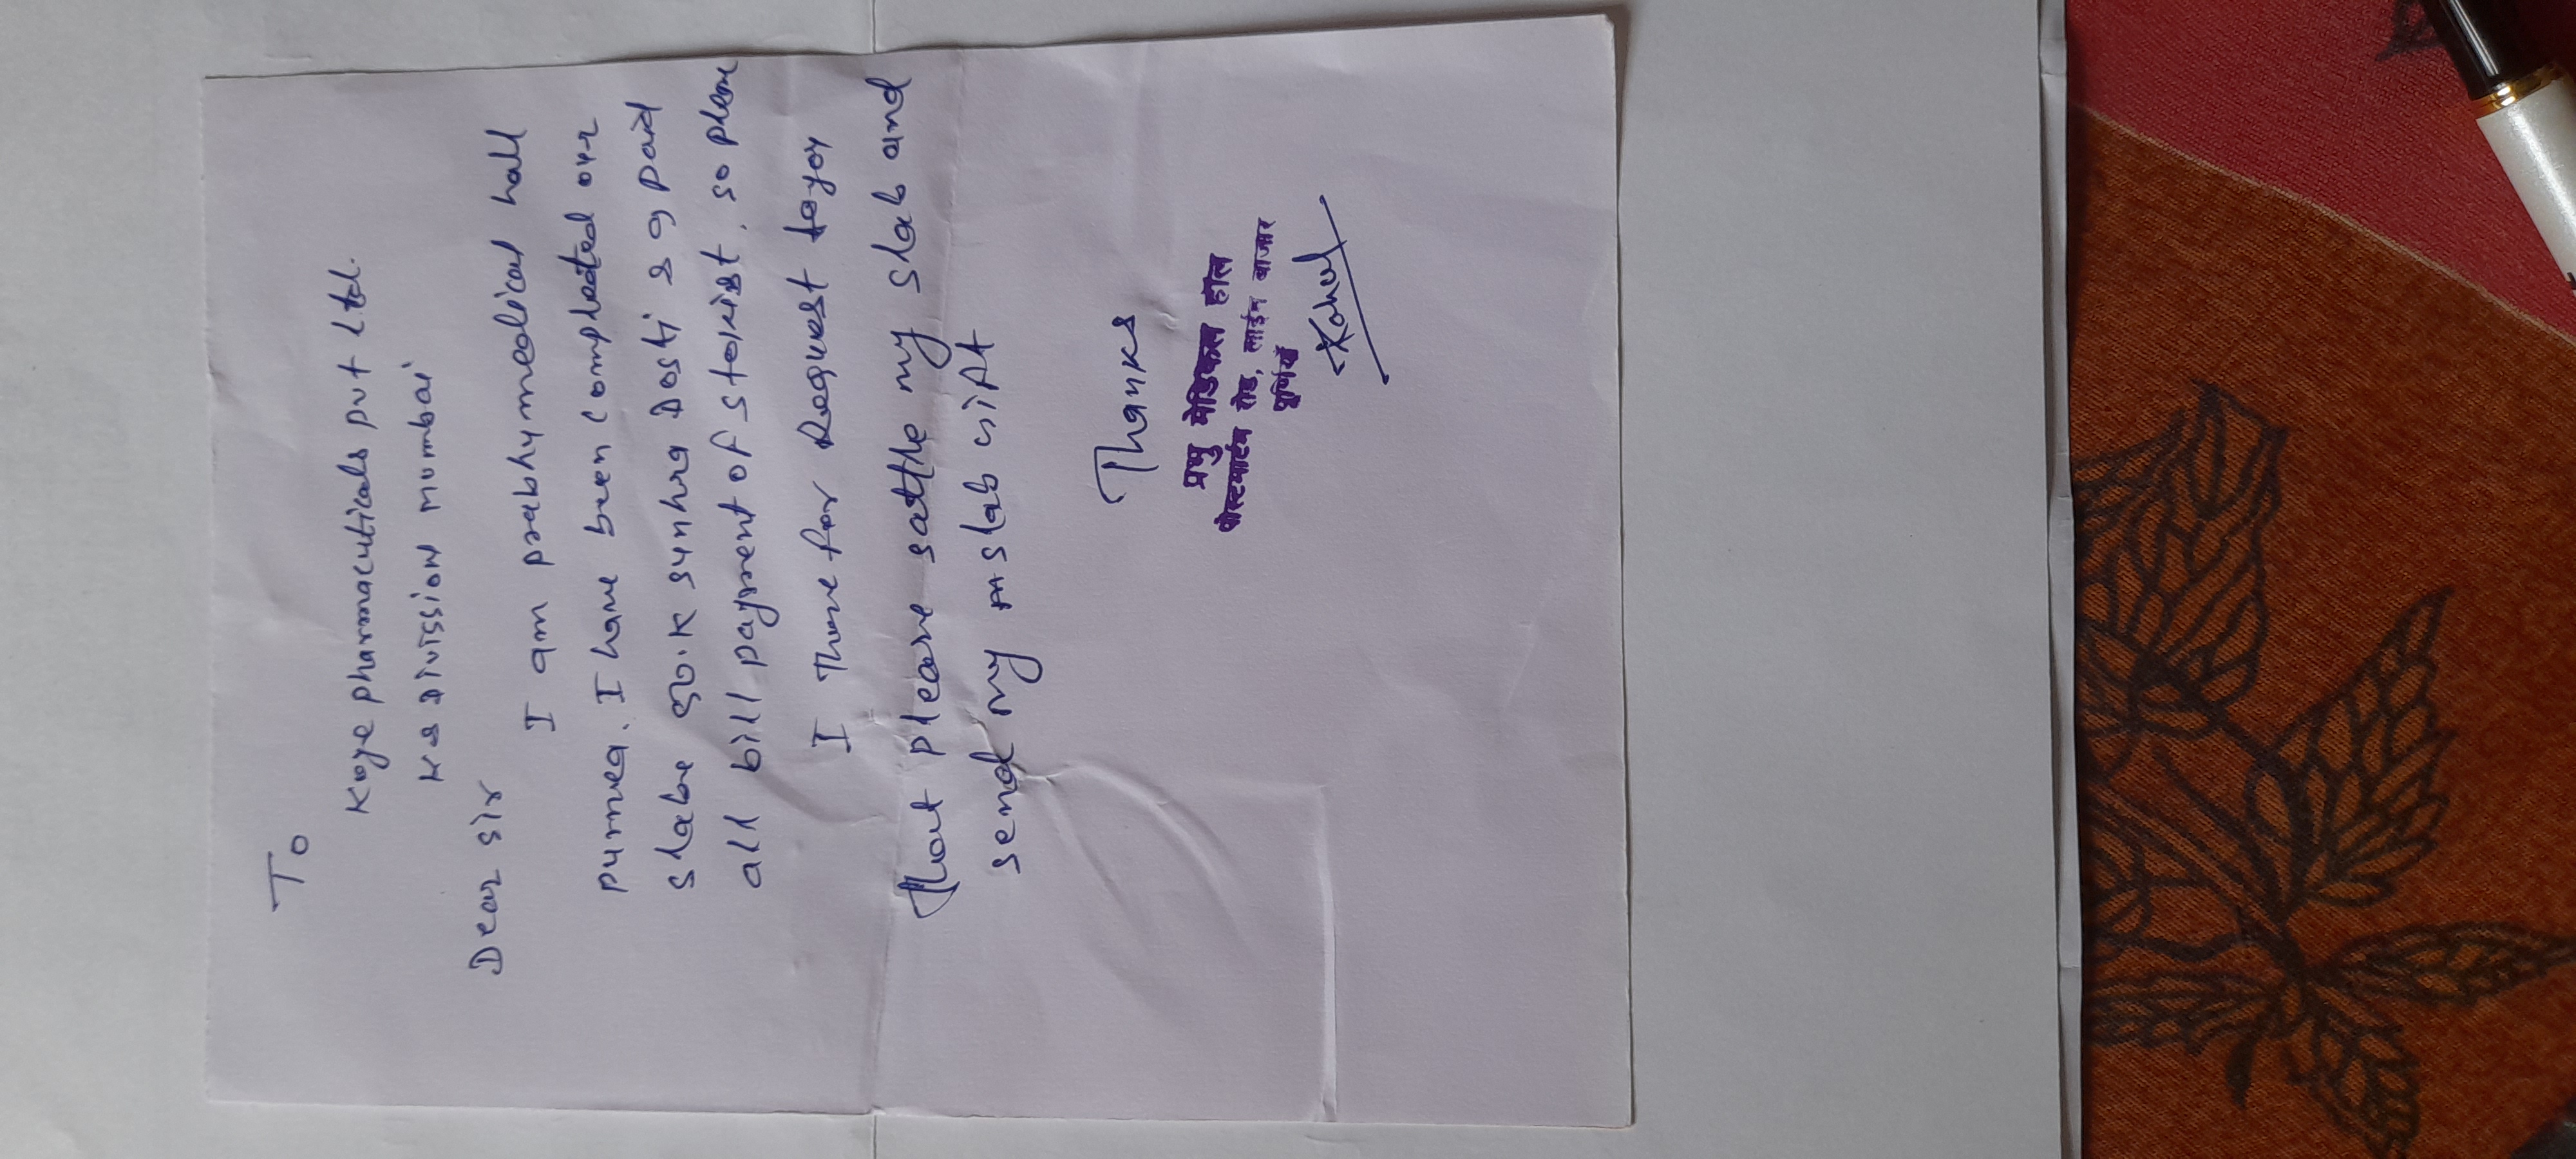 To
Koye pharmaceuticals pvt Ltd.
K2 Division mumbai
Dear sir
I am prabhymedical hall
purnea. I have been completed our
slabe 50.K sunhra Dosti & g paid
all bill payment of stokist. so pleas
I There for Request to you
that please sattle my slab and
send my slab gift
Thanks
प्रभु मेडिकल हॉल
पोस्टमार्टम रोड, लाईन बाजार
पूर्णियाँ